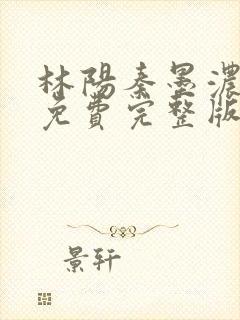 林陽秦墨濃
免費完整版
景轩